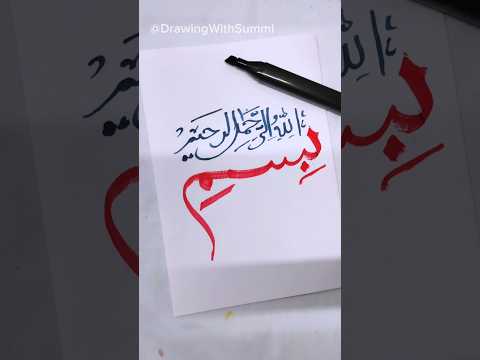 @DrawingWithSumml
بِسمِ
اللهِ الرَّحمٰنِ الرحيم